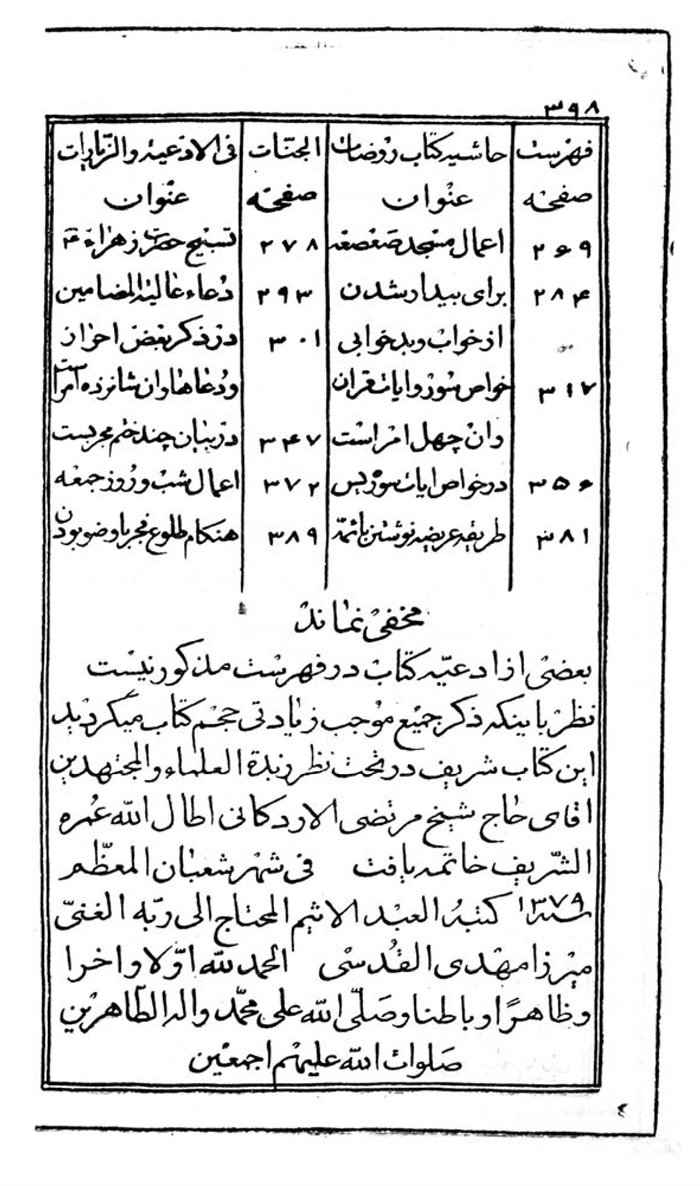 ۳۹۸
فهرست حاشیه کتاب روضات الجنّات فی الادعیة والزّیارات
صفحه عنوان صفحه عنوان
۲۶۹ اعمال مسجد صعصعه ۲۷۸ تسبیح حضرت زهراء ع
۲۸۴ برای بیدار شدن ۲۹۳ دعاء عالیة المضامین
از خواب و بدخوابی ۳۰۱ در ذکر بعض احراز
۳۱۷ خواص سور و ایات قران ودعاها وان شانزده امر است
وان چهل امر است ۳۴۷ در بیان چند ختم مجربست
۳۵۶ در خواص ایات سوره یس ۳۷۲ اعمال شب و روز جمعه
۳۸۱ طریقه عریضه نوشتن بائمّه ۳۸۹ هنکام طلوع فجر باوضو بودن
مخفی نماند
بعضی از ادعیّه کتاب در فهرست مذکور نیست
نظر باینکه ذکر جمیع موجب زیادتی حجم کتاب میکردید
این کتاب شریف در تحت نظر زبدة العلماء والمجتهدین
اقای حاج شیخ مرتضی الاردکانی اطال الله عمره
الشّریف خاتمه یافت فی شهر شعبان المعظّم
سنه ۱۳۷۹ کتبه العبد الاثیم المحتاج الی ربّه الغنیّ
میرزا مهدی القدسی الحمد لله اوّلا واخرا
وظاهرًا وباطنا وصلّی الله علی محمّد واله الطّاهرین
صلوات الله علیهم اجمعین